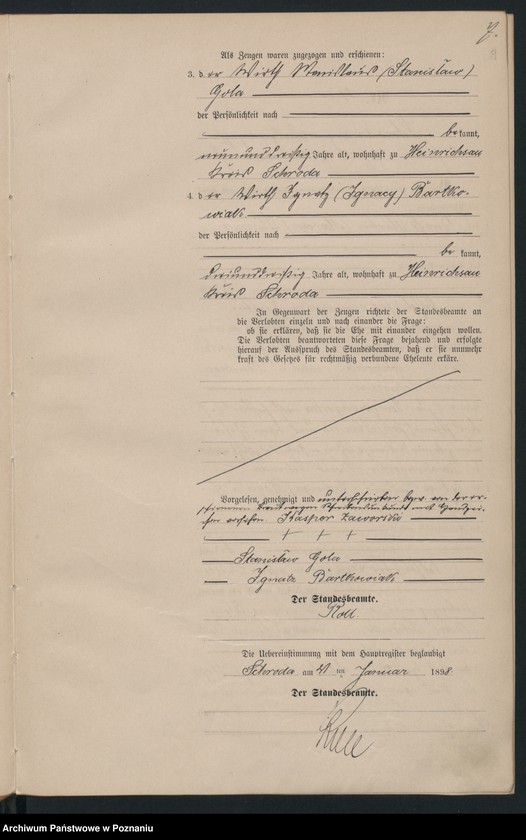 7.
Als Zeugen waren zugezogen und erschienen:
3. der Wirth Stanislaus (Stanisław)
Gola
der Persönlichkeit nach
bekannt,
neununddreißig Jahre alt, wohnhaft zu Heinrichsau
Kreis Schroda
4. der Wirth Ignatz (Ignacy) Bartko-
wiak
der Persönlichkeit nach
bekannt,
dreiunddreißig Jahre alt, wohnhaft zu Heinrichsau
Kreis Schroda
In Gegenwart der Zeugen richtete der Standesbeamte an
die Verlobten einzeln und nach einander die Frage:
ob sie erklären, daß sie die Ehe mit einander eingehen wollen.
Die Verlobten beantworteten diese Frage bejahend und erfolgte
hierauf der Ausspruch des Standesbeamten, daß er sie nunmehr
kraft des Gesetzes für rechtmäßig verbundene Eheleute erkläre.
Vorgelesen, genehmigt und unterschrieben bezw. von der er-
schienenen Braut wegen Schreibensunkunde mit Handzei-
chen versehen. Kaspor Zaworski
+ + +
Stanisław Gola
Ignatz Bartkowiak
Der Standesbeamte.
Roll
Die Uebereinstimmung mit dem Hauptregister beglaubigt
Schroda am 21 ten Januar 1898
Der Standesbeamte.
Archiwum Państwowe w Poznaniu